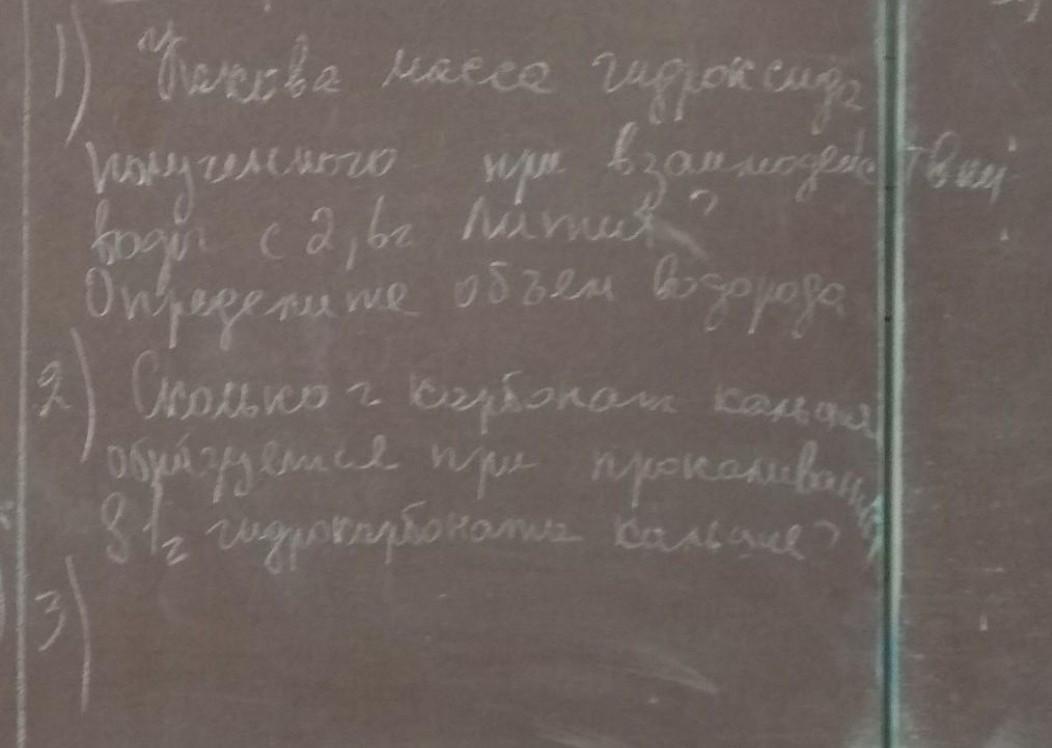 1) Какова масса гидроксида
полученного при взаимодействии
воды с 2,6г лития?
Определите объем водорода
2) Сколько г карбонат кальция
образуется при прокаливании
81г гидрокарбоната кальция?
3)